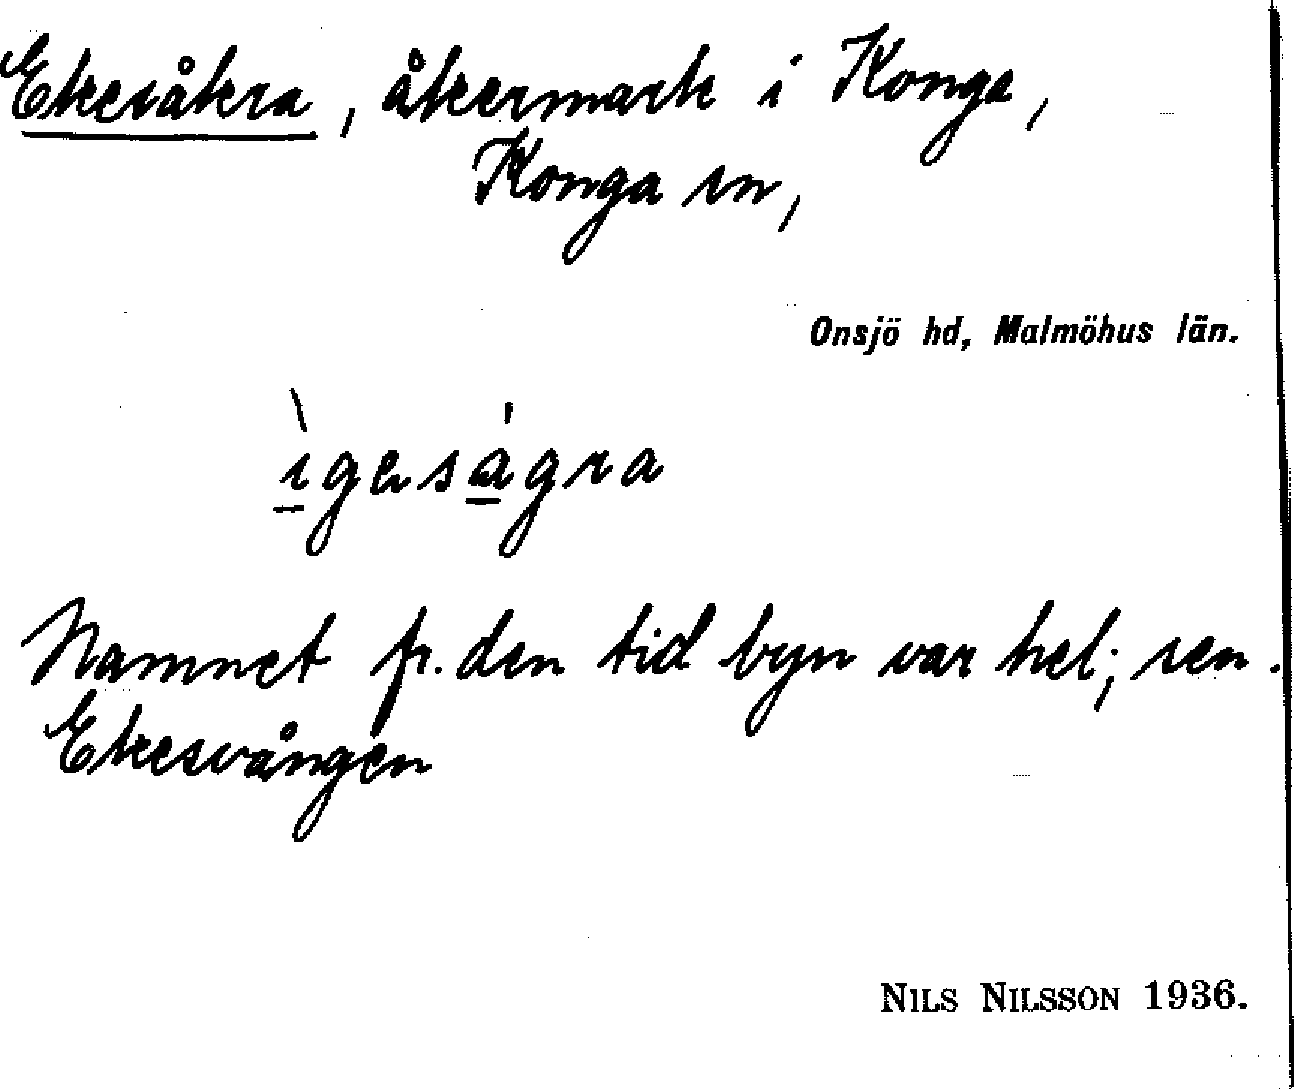 Ekesåkra, åkermark i Konga,
Konga sn,
Onsjö hd, Malmöhus län.
Namnet fr. den tid byn var hel; sen.
Ekesvången
NILS NILSSON 1936.